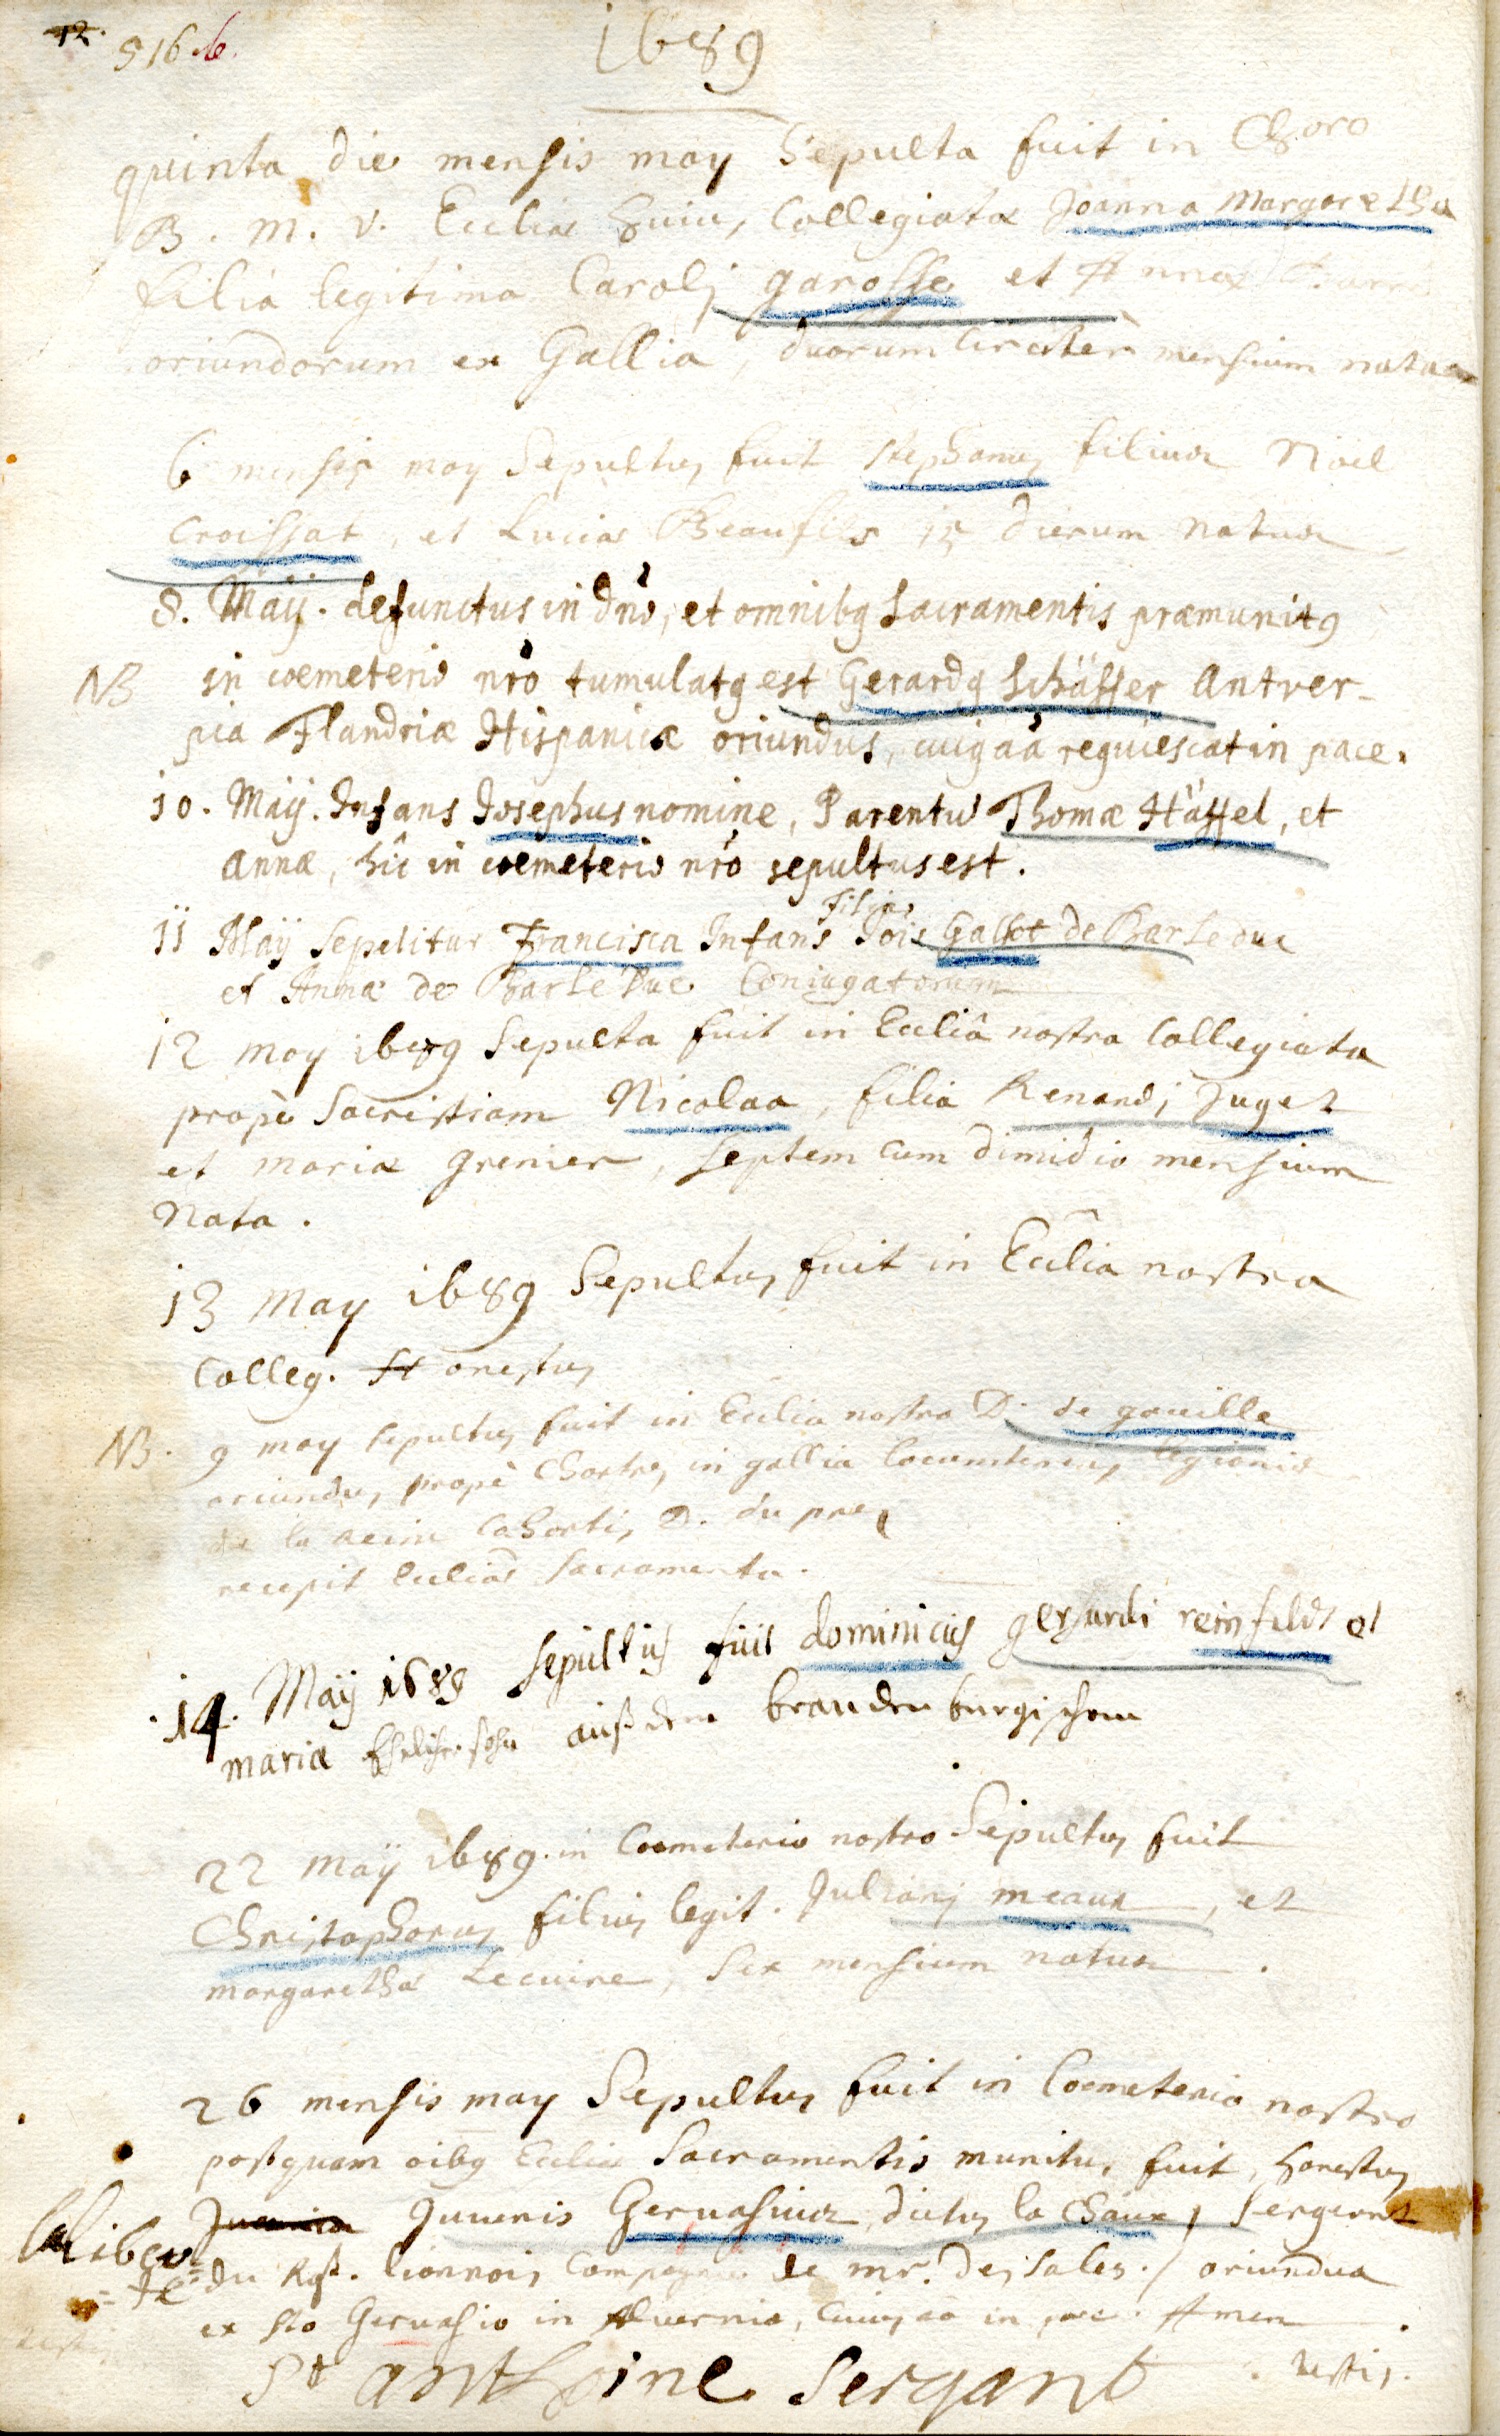 12. 516 b.
1689
quinta die mensis may Sepulta fuit in Choro
B. M. V. Eccliæ huius Collegiatæ Joanna Margaretha
filia legitima Carolj garosse et Annæ
oriundorum ex Gallia, duorum circiter mensium nata
6 mensis may Sepultus fuit stephanus filius Noel
Croissat, et Luciæ Beaufils 15 dierum natus
8. Maÿ. defunctus in dnō, et omnibg sacramentis præmunitg
NB in coemeterio nrō tumulatg est Gerardg Schäffer Antver-
pia Flandriæ Hispanicæ oriundus, cuig aā requiescat in pace.
10. Maÿ. Infans Josephus nomine, Parentū Thomæ Häffel, et
Annæ, hîc in coemeterio nrō sepultus est.
filia
11 Maÿ Sepelitur Francisca Infans Jois Gallot de Bar le duc
et Annæ de Bar le Duc Coniugatorum
12 may 1689 Sepulta fuit in Eccliâ nostra Collegiata
propè Sacristiam Nicolaa, filia Renandj Juget
et mariæ grenier, septem cum dimidio mensium
Nata.
13 May 1689 Sepultus fuit in Ecclia nostra
Colleg. H onestus
NB. 9 may sepultus fuit in Ecclia nostra D. de gouille
oriundus propè Chartres in gallia locumtenens legionis
de la Cohortis D. du prez
recepit Ecclias Sacramenta.
14. Maÿ 1689 sepultus fuit dominicus gerhardi reinfeldt et
mariæ Ehelicher sohn auß dem brandenburgischem
22 maÿ 1689. in Coemeterio nostro Sepultus fuit
Christophorus filius legit. Julianj meaux, et
margarethæ Lecuire, sex mensium natus.
26 mensis may Sepultus fuit in Coemeterio nostro
postquam oibg Eccliæ Sacramentis munitus fuit, honestus
Juvenis Gervasius dictus la Chaux, Sergeant
du Rgt. lionnois Compagnie de mr. Des sales./ oriundus
ex Sto Gervasio in Alvernia, Cuius aā in pace. Amen.
St anthoine sergant. testis.